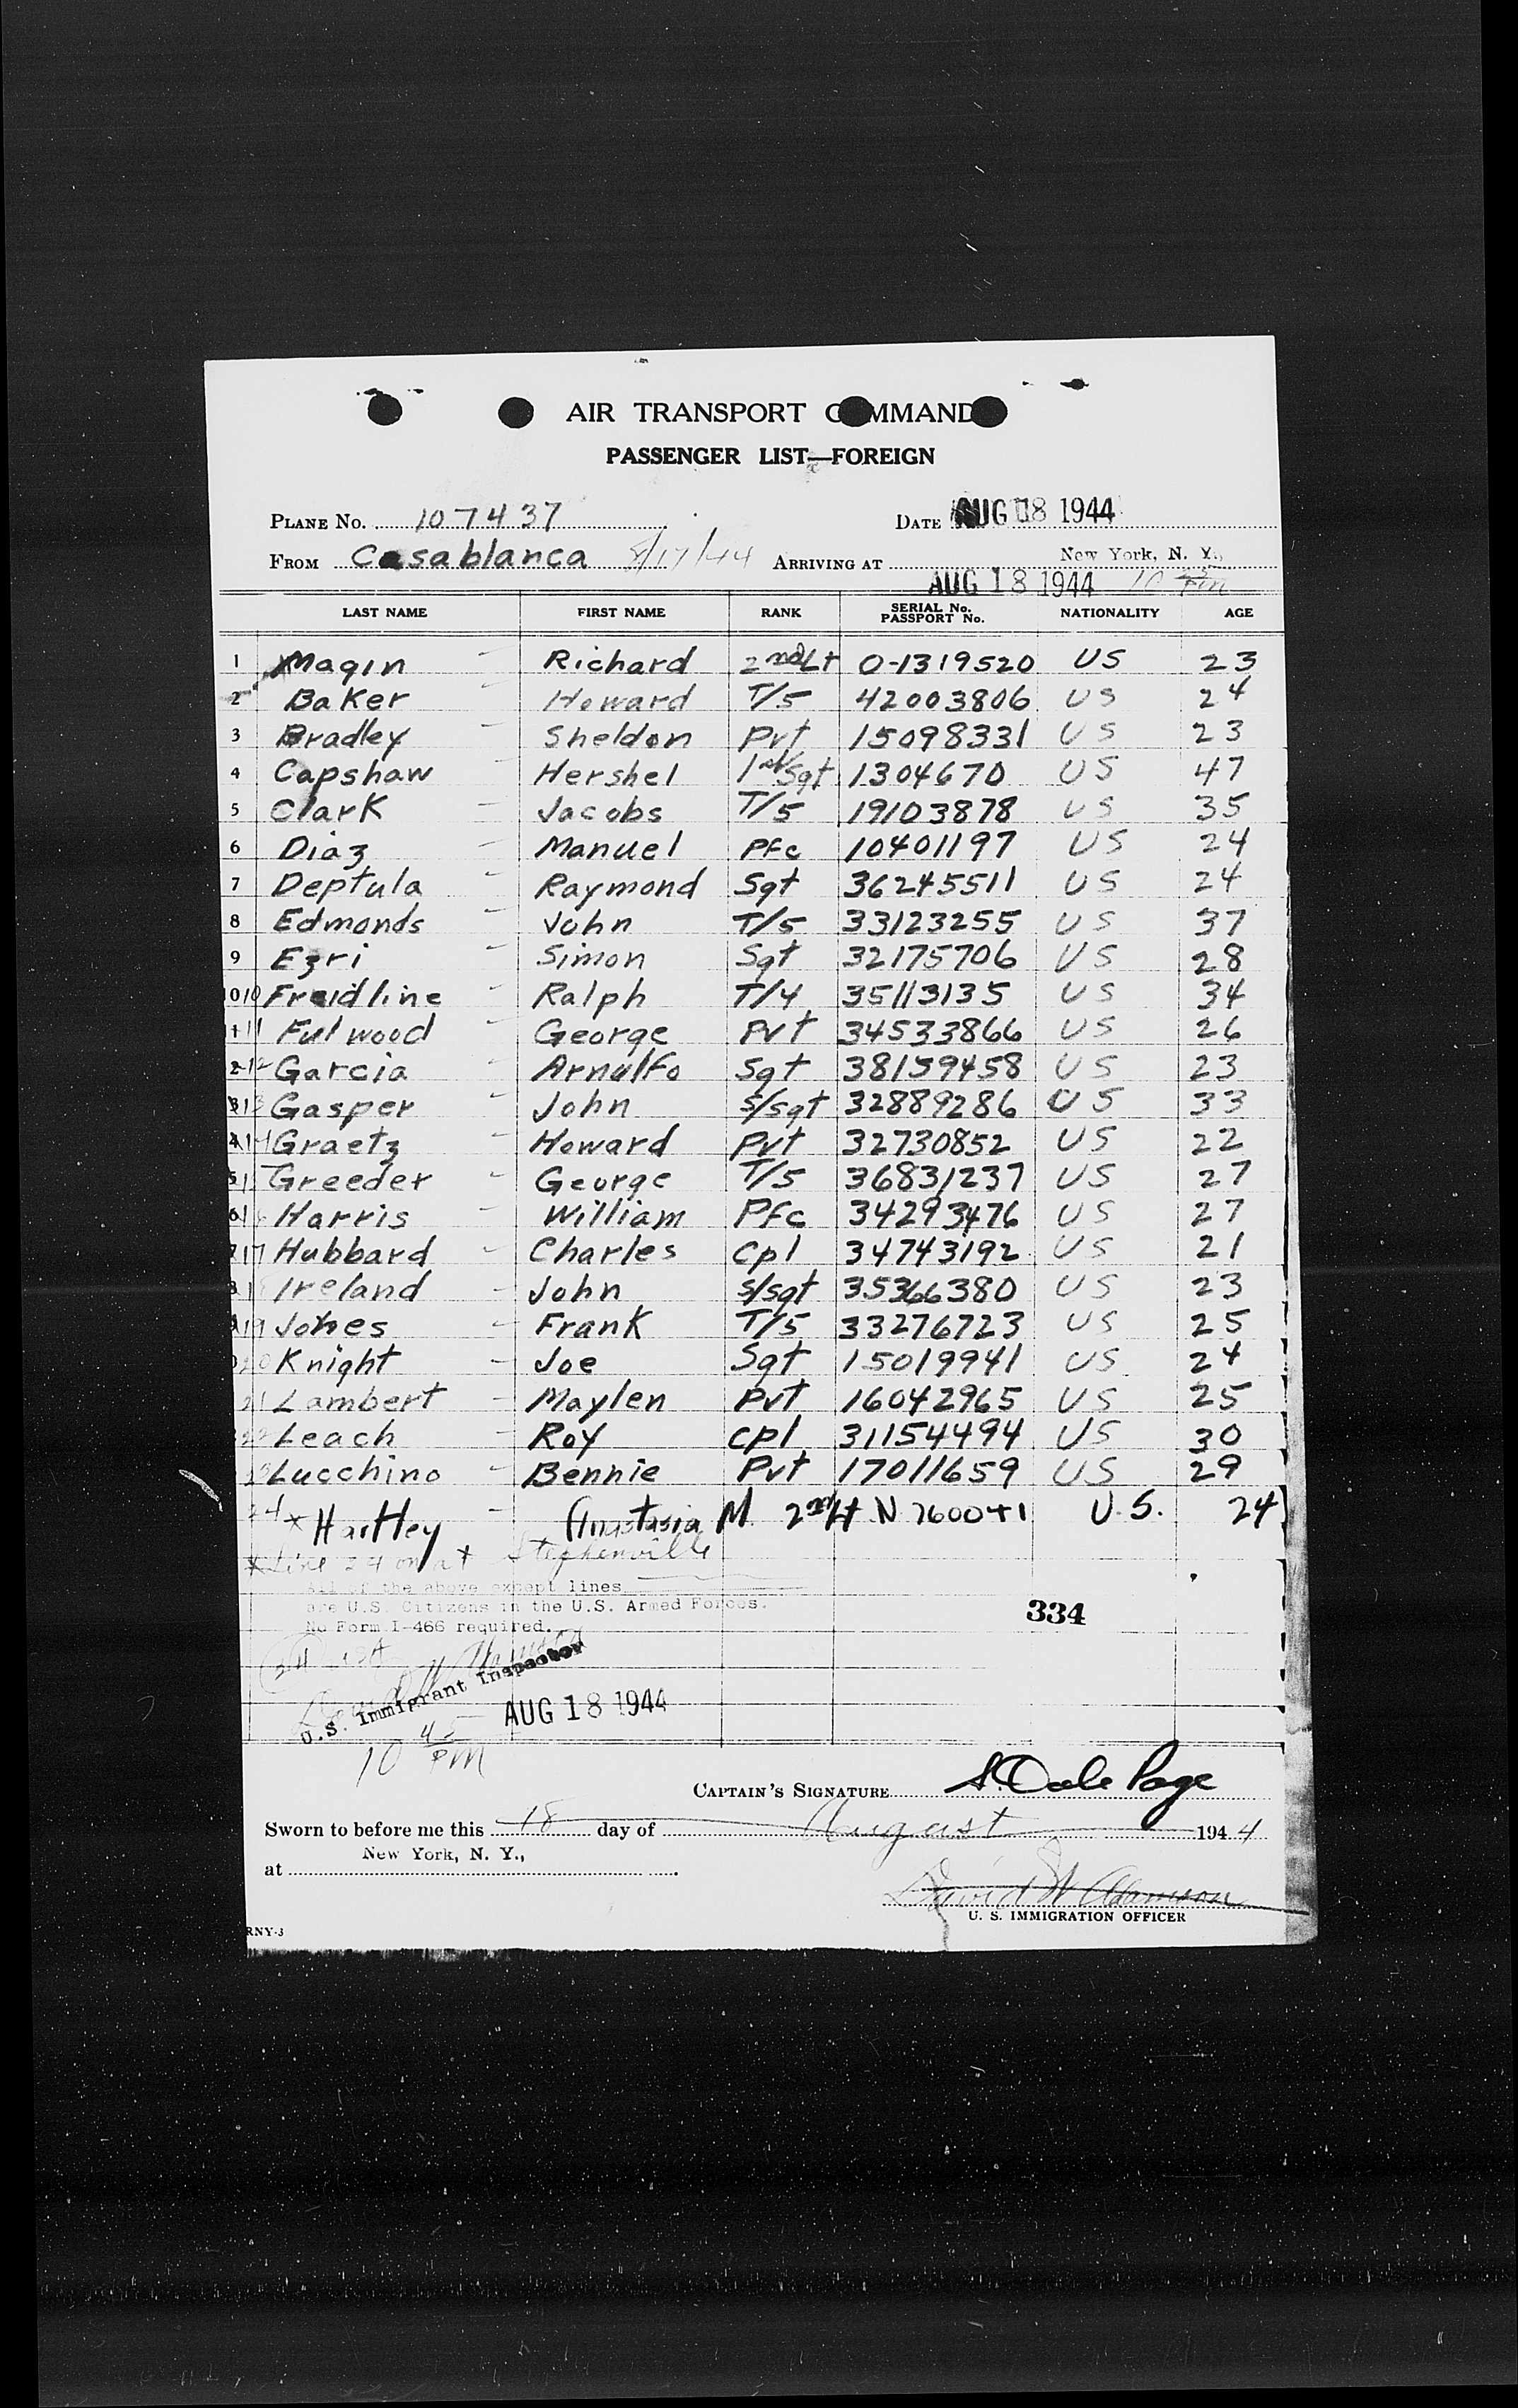 AIR TRANSPORT COMMAND
PASSENGER LIST—FOREIGN
PLANE No. 107437 DATE AUG 18 1944
FROM Casablanca 8/17/44 ARRIVING AT New York, N. Y.,
AUG 18 1944 10 PM
LAST NAME FIRST NAME RANK SERIAL No. PASSPORT No. NATIONALITY AGE
1 Magin - Richard 2nd Lt O-1319520 US 23
2 Baker - Howard T/5 42003806 US 24
3 Bradley - Sheldon Pvt 15098331 US 23
4 Capshaw - Hershel 1st/Sgt 1304670 US 47
5 Clark - Jacobs T/5 19103878 US 35
6 Diaz - Manuel Pfc 10401197 US 24
7 Deptula - Raymond Sgt 36245511 US 24
8 Edmonds - John T/5 33123255 US 37
9 Ezri - Simon Sgt 32175706 US 28
10 Freidline - Ralph T/4 35113135 US 34
11 Fulwood - George Pvt 34533866 US 26
12 Garcia - Arnulfo Sgt 38159458 US 23
13 Gasper - John S/Sgt 32889286 US 33
14 Graetz - Howard Pvt 32730852 US 22
15 Greeder - George T/5 36831237 US 27
16 Harris - William Pfc 34293476 US 27
17 Hubbard - Charles Cpl 34743192 US 21
18 Ireland - John S/Sgt 35366380 US 23
19 Jones - Frank T/5 33276723 US 25
20 Knight - Joe Sgt 15019941 US 24
21 Lambert - Maylen Pvt 16042965 US 25
22 Leach - Roy Cpl 31154494 US 30
23 Lucchino - Bennie Pvt 17011659 US 29
24 x Hartley - Anastasia M 2nd Lt N 760041 U.S. 24
x Line 24 on at Stephenville
All of the above except lines
are U.S. Citizens in the U.S. Armed Forces.
No Form I-466 required.
334
U.S. Immigrant Inspector
AUG 18 1944
10 45 PM
CAPTAIN'S SIGNATURE S. Dale Page
Sworn to before me this 18 day of August 1944
at New York, N. Y.,
David W Adamson
U. S. IMMIGRATION OFFICER
RNY-3